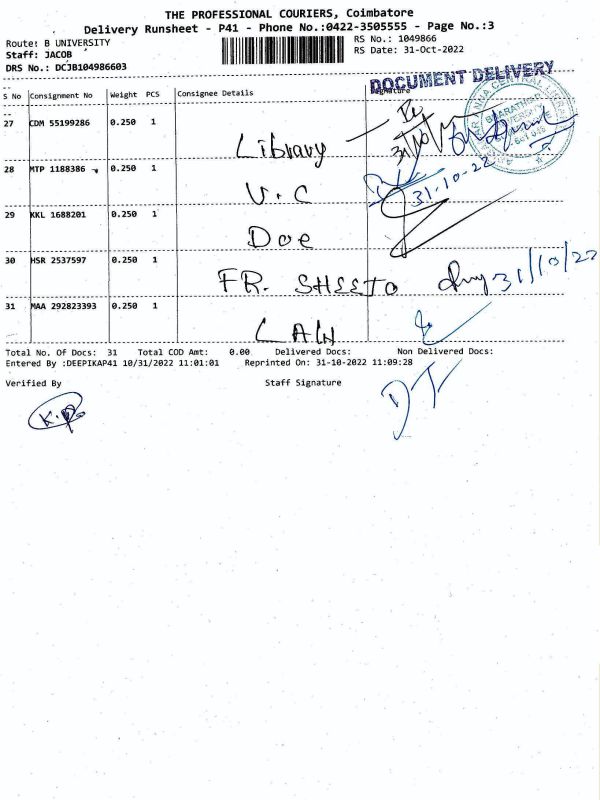 THE PROFESSIONAL COURIERS, Coimbatore
Delivery Runsheet - P41 - Phone No.:0422-3505555 - Page No.:3
Route: B UNIVERSITY
RS No.: 1049866
Staff: JACOB
RS Date: 31-Oct-2022
DRS No.: DCJB104986603
DOCUMENT DELIVERY
S No Consignment No Weight PCS Consignee Details Signature
27 CDM 55199286 0.250 1
Library 31/10/
28 MTP 1188386 0.250 1
V.C 31-10-22
29 KKL 1688201 0.250 1
Doe
30 HSR 2537597 0.250 1
FR. SHEEJO 31/10/22
31 MAA 292823393 0.250 1
LAW
Total No. Of Docs: 31 Total COD Amt: 0.00 Delivered Docs: Non Delivered Docs:
Entered By :DEEPIKAP41 10/31/2022 11:01:01 Reprinted On: 31-10-2022 11:09:28
Verified By Staff Signature